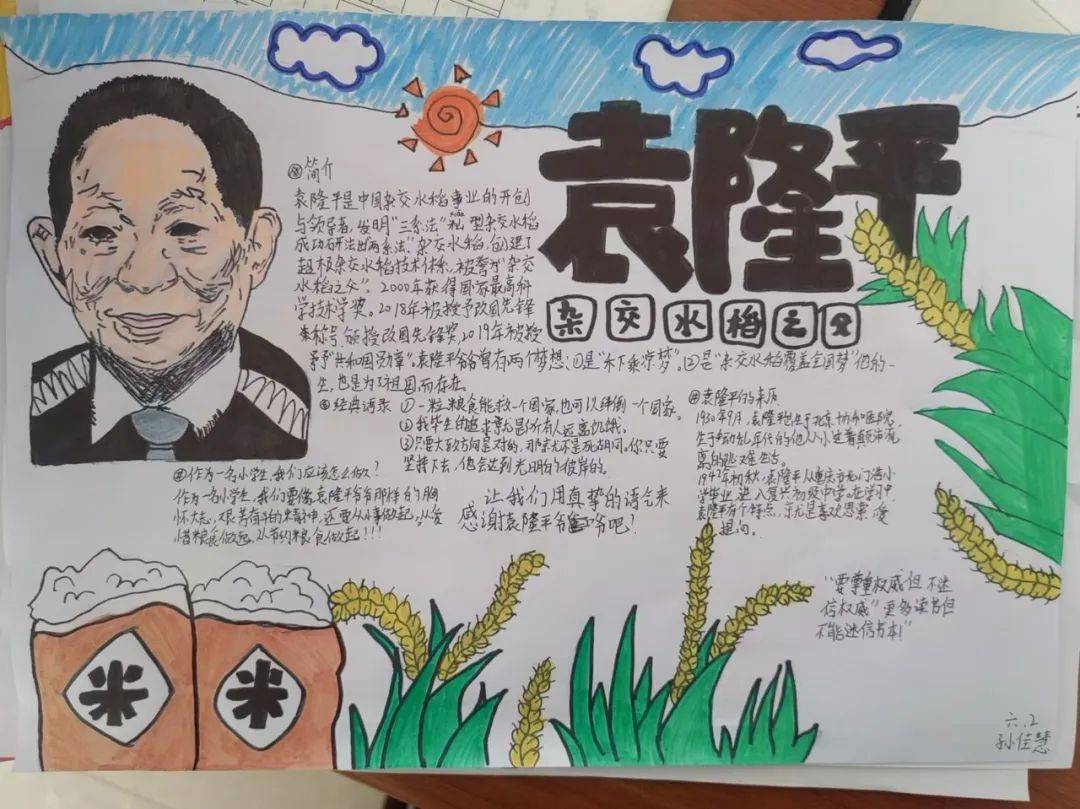 袁隆平
杂交水稻之父
简介
袁隆平是中国杂交水稻事业的开创
与领导者,发明"三系法"籼型杂交水稻
成功研法出"两系法"杂交水稻,创建了
超级杂交水稻技术体系,被誉为"杂交
水稻之父"。2000年获得国家最高科
学技术学奖。2018年被授予改国先锋
称号,颁授改国先锋奖,2019年被授
予"共和国勋章"。袁隆平爷爷曾有两个梦想:①是"禾下乘凉梦"。②是"杂交水稻覆盖全国梦"他的一
生,也是为了祖国而存在。
经典语录 ①一粒粮食能救一个国家,也可以绊倒一个国家。
②我毕生的追求就是所有人远离饥饿。
③只要大致方向是对的,那就不是死胡同。你只要
坚持下去,他会达到光明的彼岸的。
袁隆平的来历
1930年9月,袁隆平出生于北京协和医院,
生于动乱年代的他从小过着颠沛流
离的逃难生活。
1942年初秋,袁隆平从重庆市龙门浩小
学毕业,进入复兴初级中学。在学习中,
袁隆平有个特点,就是喜欢思索,爱
提问。
作为一名小学生,我们应该怎么做?
作为一名小学生,我们要像袁隆平爷爷那样的胸
怀大志,艰苦奋斗的精神,还要从小事做起,从爱
惜粮食做起,从节约粮食做起!!!
让我们用真挚的语气来
感谢袁隆平爷爷吧!
"要尊重权威但不迷
信权威"更多读书但
不能迷信书本!"
米
米
六.2
孙佳慧